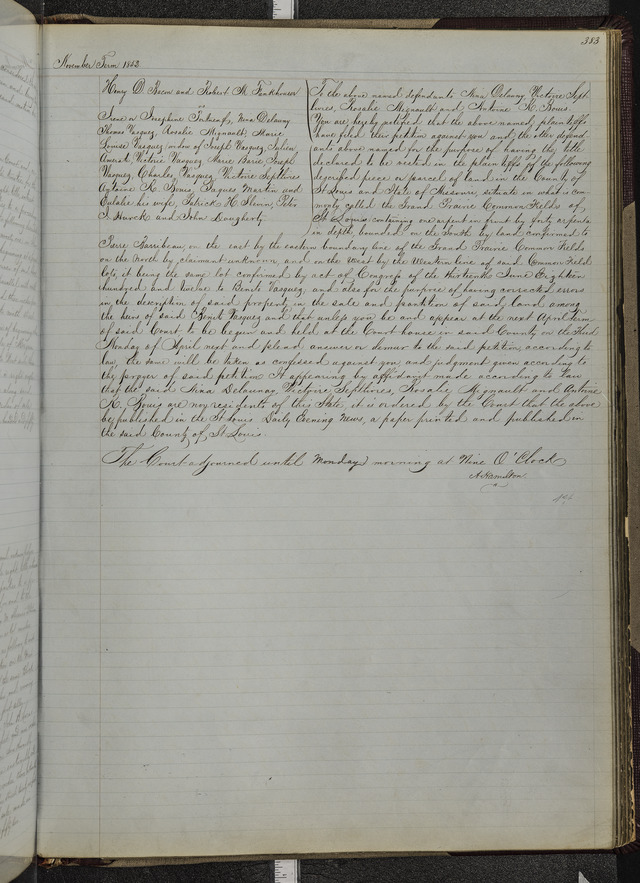 383
November Term 1852
Henry D. Bacon and Robert M.
vs
Irene or Josephine Nina Delaunay
Thomas Vasquez, Rosalie Mignault, Marie
Louise Vasquez widow of Joseph Vasquez, Julien
Victorie Vasquez Marie Joseph
Vasquez, Charles Vasquez, Victorie Septlivres
Antoine R. Bouis, Jaques Martin and
Eulalie his wife, Patrick H. Slevin, Peter
J. Hurck and John Dougherty
To the above named defendants Nina Delauny Victoire Sept-
livres, Rosalie Mignault and Antoine R. Bouis.
You are hereby notified that the above named plaintiffs
have filed their petition against you and the other defend-
ants above named for the purpose of having the title
declared to be vested in the plaintiffs of the following
described piece or parcel of land in the County of
St Louis and State of Missouri, situate in what is com-
monly called the Grand Prairie Common Fields of
St Louis, containing one arpent in front by forty arpents
in depth, bounded on the South by land confirmed to
Pierre Barribeau on the east by the eastern boundary line of the Grand Prairie Common Fields
on the North by claimant unknown and on the West by the Western line of said Common Field
lots, it being the same lot confirmed by act of Congress of the thirteenth June Eighteen
hundred and twelve to Benito Vasquez, and also for the purpose of having corrected errors
in the description of said property in the sale and partition of said land among
the heirs of said Benito Vasquez and that unless you be and appear at the next April term
of said Court, to be begun and held at the Court house in said County on the third
Monday of April next and plead answer or demur to the said petition according to
law, the same will be taken as confessed against you and judgment given according to
the prayer of said petition It appearing by affidavit made according to law
that the said Nina Delaunay, Victoire Septlivres, Rosalie Mignault and Antoine
R. Bouis are non residents of this State, it is ordered by the Court that the above
be published in the St Louis Daily Evening News, a paper printed and published in
the said County of St Louis.
The Court adjourned until Monday morning at Nine O'Clock
A Hamilton